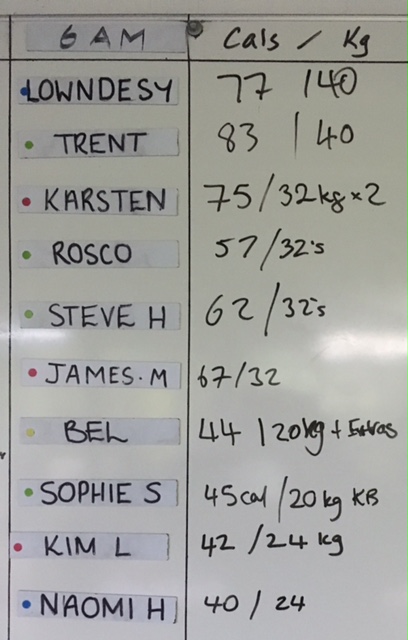 6 AM Cals / Kg
LOWNDESY 77 / 40
TRENT 83 / 40
KARSTEN 75/32kg x2
ROSCO 57/32's
STEVE H 62/32's
JAMES.M 67/32
BEL 44 / 20kg + Extras
SOPHIE S 45cal/20kg KB
KIM L 42/24 kg
NAOMI H 40 / 24